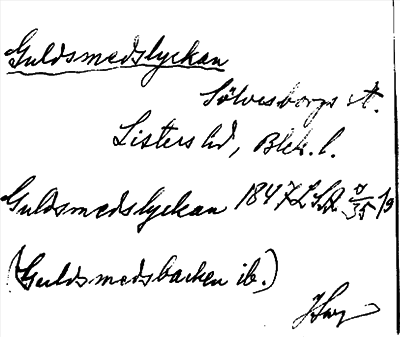 Guldsmedslyckan
Sölvesborgs st.
Listers hd, Blek. l.
Guldsmedslyckan 1847 LSA
(Guldsmedsbacken ib.)